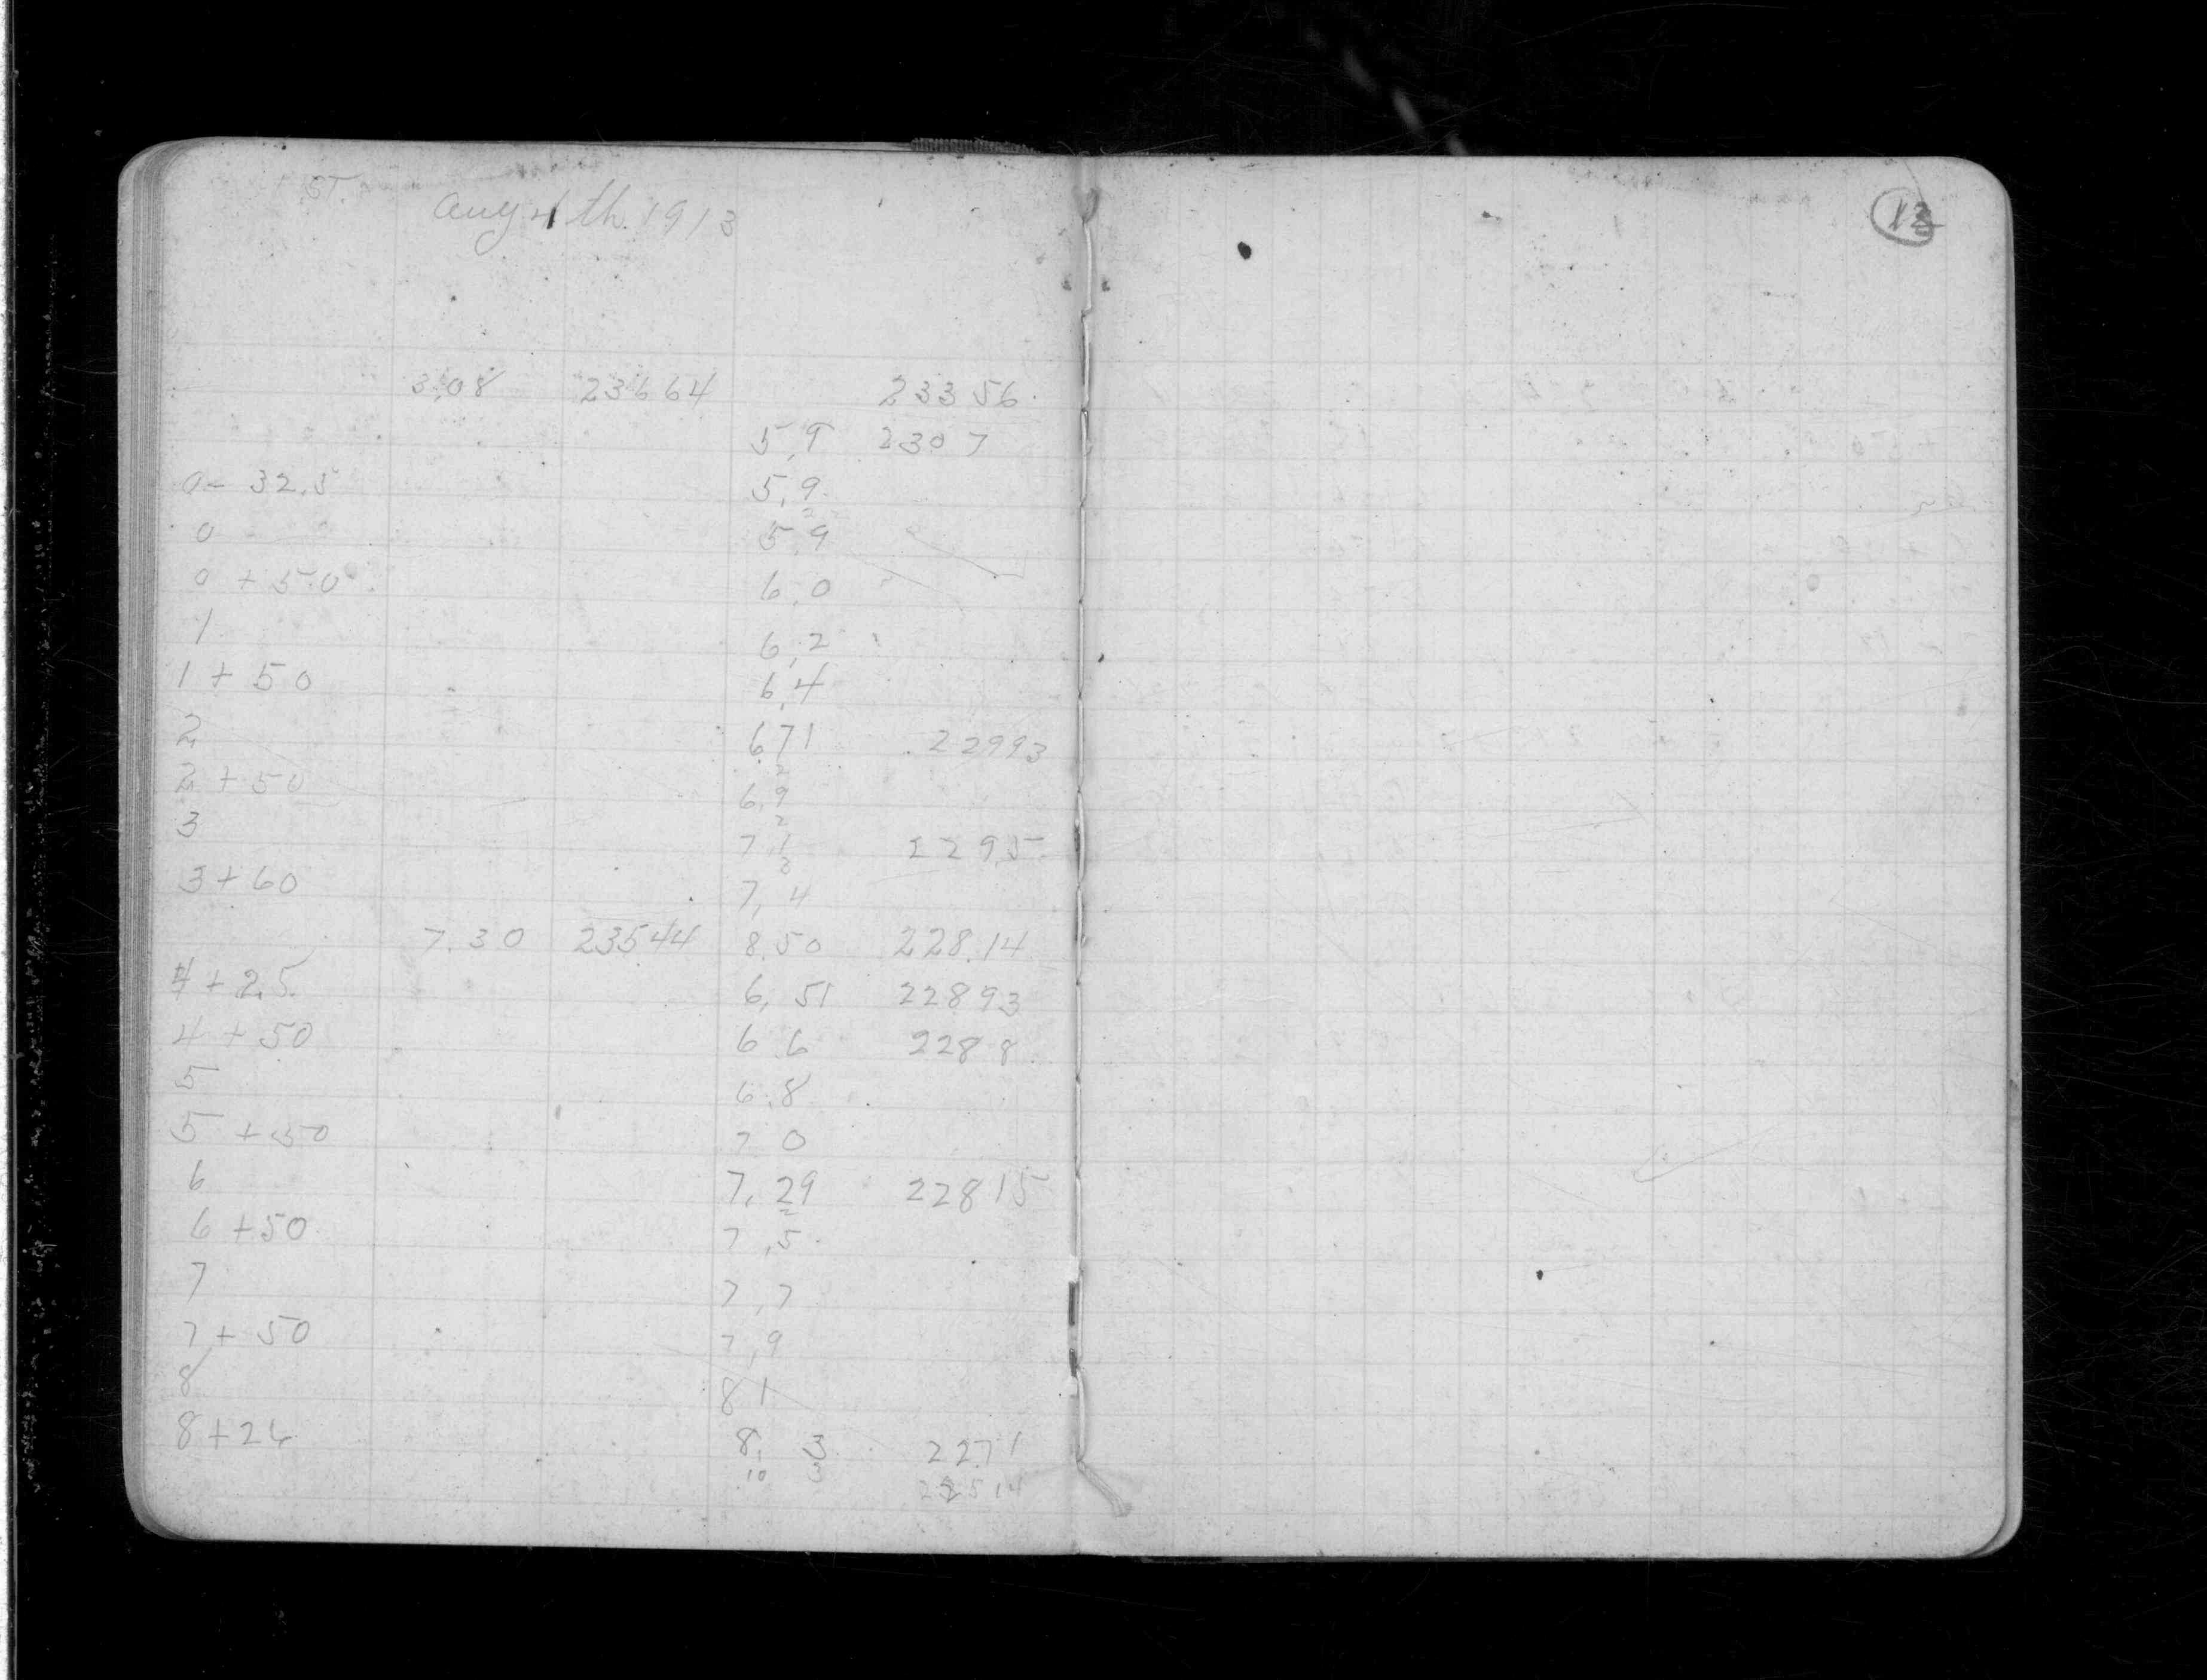 ST.
Aug 4th. 1913
13
3.08 23664 23356
5.9 2307
0 - 32.5 5.9
0 5.9
0 + 50 6.0
1 6.2
1 + 50 6.4
2 6.71 22993
2 + 50 6.9
3 7.1 229.5
3 + 60 7.4
7.30 23544 8.50 228.14
4 + 25 6.51 22893
4 + 50 6.6 2288
5 6.8
5 + 50 7 0
6 7.29 22815
6 + 50 7.5
7 7.7
7 + 50 7.9
8 8 1
8 + 26 8. 3 2271
10